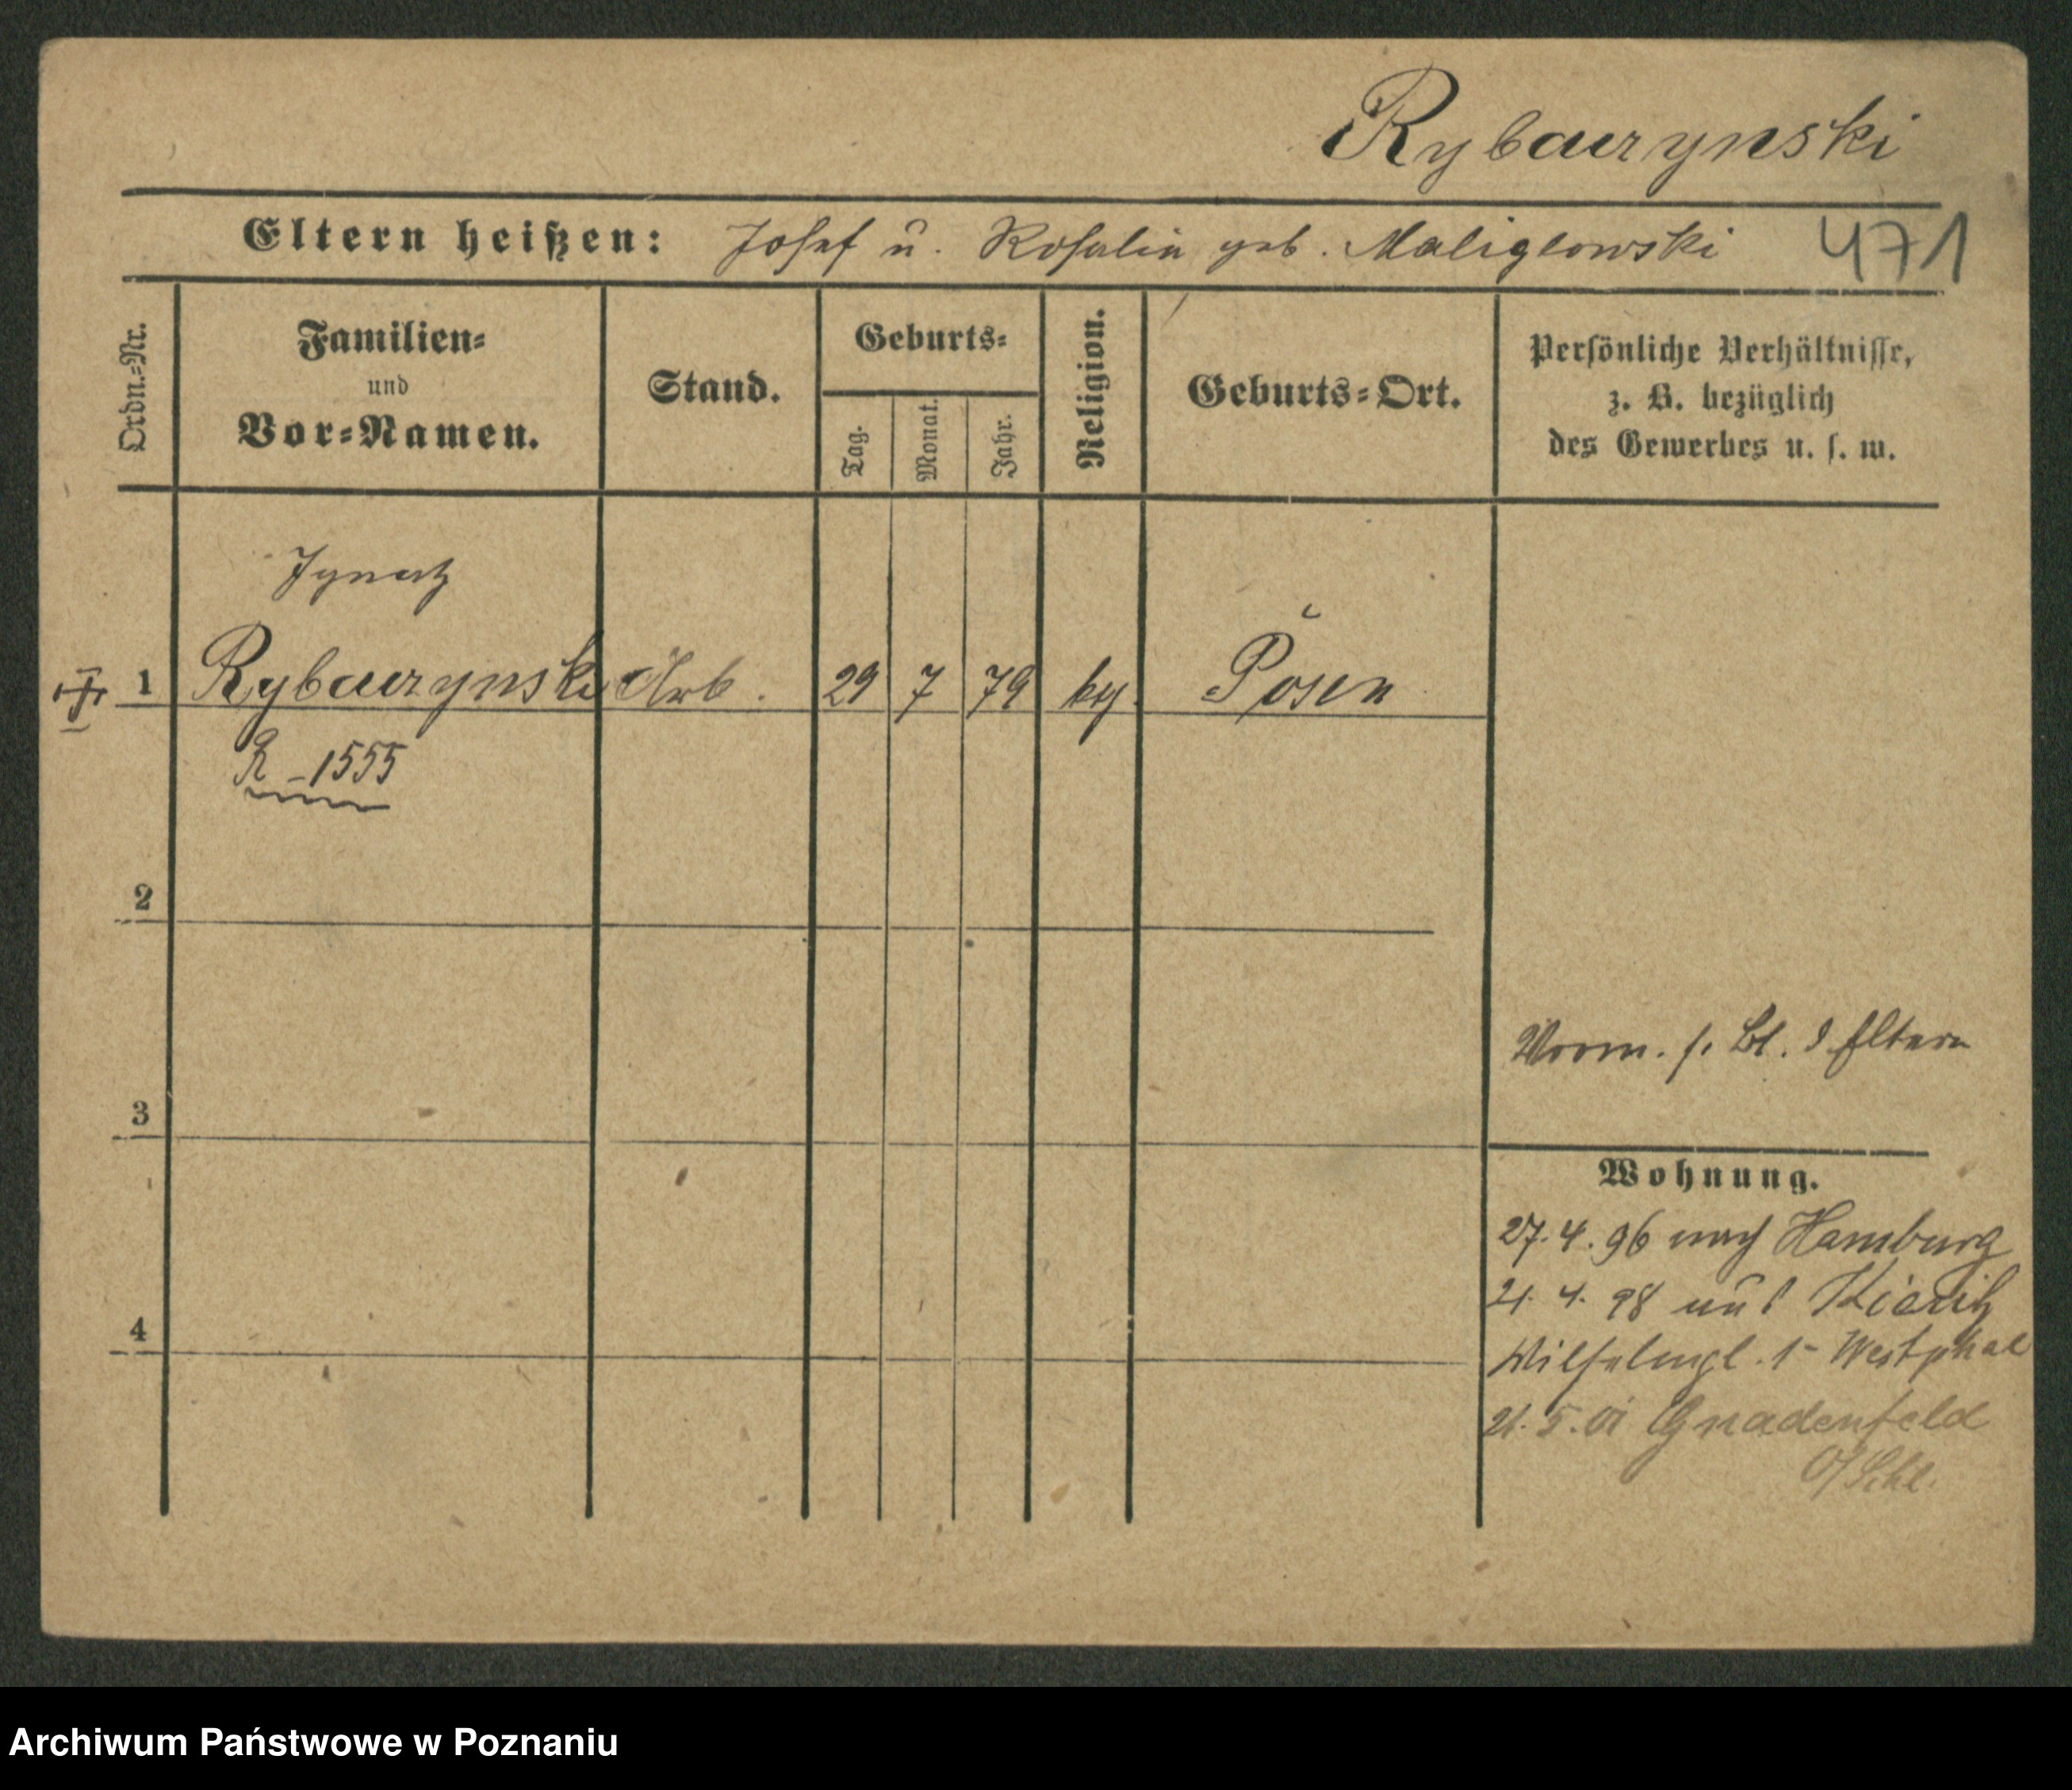 Rybaczynski
Eltern heißen: Josef u. Rosalie geb. Maliglowski 471
Ordn.-Nr.
Familien-
und
Vor-Namen.
Stand.
Geburts-
Tag.
Monat.
Jahr.
Religion.
Geburts-Ort.
Persönliche Verhältnisse,
z. B. bezüglich
des Gewerbes u. s. w.
Ignatz
1 Rybaczynski Arb. 29 7 79 Posen
R - 1555
2
Vorm. s. Bl. d Eltern
3
Wohnung.
27. 4. 96 nach Hamburg
21. 4. 98 aus
4
Westphal
21. 5. 01 Gnadenfeld
O/Schl.
Archiwum Państwowe w Poznaniu